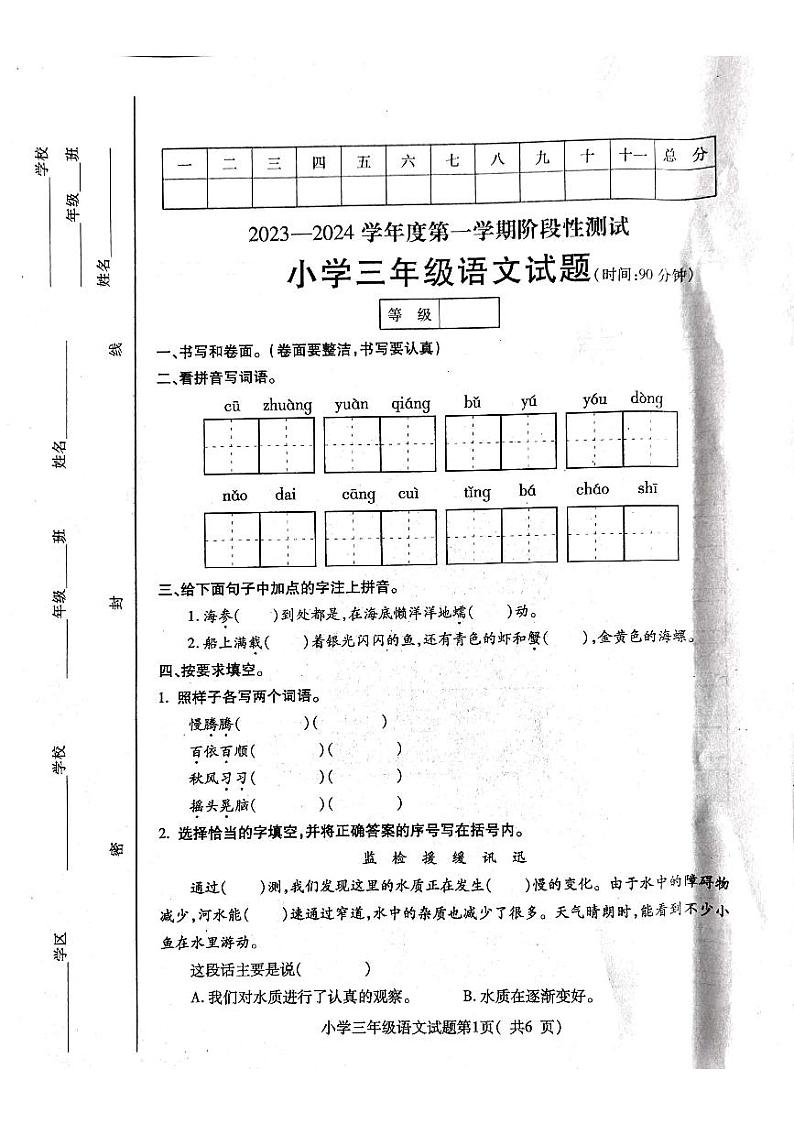 学校
年级 班
姓名
线
姓名
年级 班
封
学校
密
学区
一 二 三 四 五 六 七 八 九 十 十一 总 分
2023—2024 学年度第一学期阶段性测试
小学三年级语文试题(时间:90分钟)
等 级
一、书写和卷面。(卷面要整洁,书写要认真)
二、看拼音写词语。
cū zhuàng yuàn qiáng bǔ yú yóu dòng
nǎo dai cāng cuì tǐng bá cháo shī
三、给下面句子中加点的字注上拼音。
1. 海参( )到处都是,在海底懒洋洋地蠕( )动。
2. 船上满载( )着银光闪闪的鱼,还有青色的虾和蟹( ),金黄色的海螺。
四、按要求填空。
1. 照样子各写两个词语。
慢腾腾( )( )
百依百顺( )( )
秋风习习( )( )
摇头晃脑( )( )
2. 选择恰当的字填空,并将正确答案的序号写在括号内。
监 检 援 缓 讯 迅
通过( )测,我们发现这里的水质正在发生( )慢的变化。由于水中的障碍物
减少,河水能( )速通过窄道,水中的杂质也减少了很多。天气晴朗时,能看到不少小
鱼在水里游动。
这段话主要是说( )
A. 我们对水质进行了认真的观察。 B. 水质在逐渐变好。
小学三年级语文试题第1页( 共6 页)